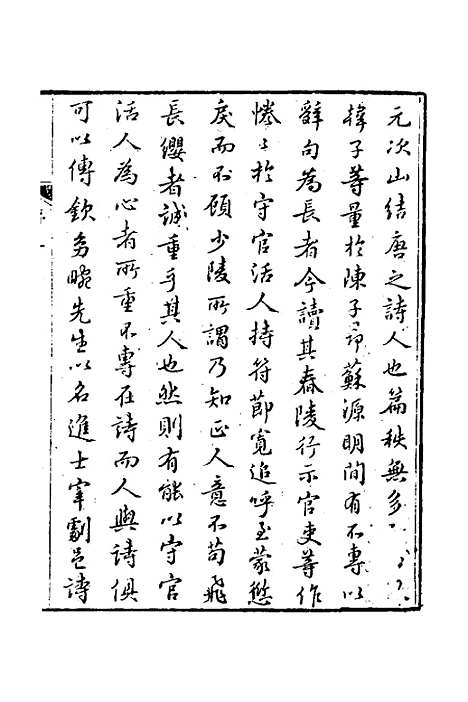 元次山結唐之詩人也篇秩無多
揮子等量於陳子昂蘇源明間有不專以
辭句為長者今讀其舂陵行示官吏等作
惓〻於守官活人持符節寬追呼至蒙愆
戾而不顧少陵所謂乃知正人意不苟飛
長纓者誠重乎其人也然則有能以守官
活人為心者所重不專在詩而人與詩俱
可以傳欽 畹先生以名進士宰劇邑詩